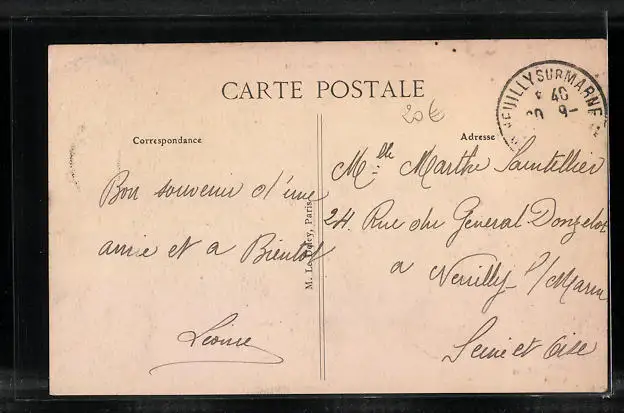 CARTE POSTALE
NEUILLY SUR MARNE
40
9-
20€
Correspondance
Adresse
Bon souvenir d'une
amie et a Bientot
Léonie
M. Le
Paris
Mlle Marthe Saintellier
24 Rue du General Donzelot
a Neuilly s/Marne
Seine et Oise